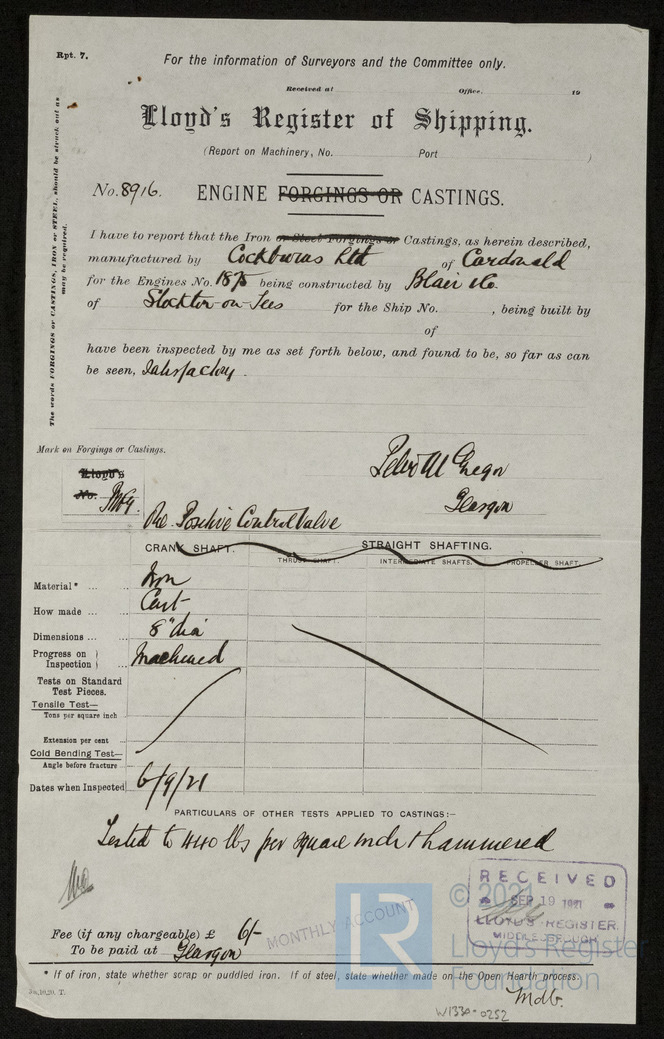 Rpt. 7.
For the information of Surveyors and the Committee only.
Received at Office, 19
Lloyd's Register of Shipping.
(Report on Machinery, No. Port )
No. 8916. ENGINE FORGINGS OR CASTINGS.
The words FORGINGS or CASTINGS, IRON or STEEL, should be struck out as may be required.
I have to report that the Iron or Steel Forgings or Castings, as herein described,
manufactured by Cockburns Ltd of Cardonald
for the Engines No. 1875 being constructed by Blair & Co.
of Stockton-on-Tees for the Ship No. , being built by
of
have been inspected by me as set forth below, and found to be, so far as can
be seen, Satisfactory.
Mark on Forgings or Castings.
Lloyd's
No.
McG.
Peter McGregor
Glasgow
One Positive Control Valve
CRANK SHAFT. STRAIGHT SHAFTING.
THRUST SHAFT. INTERMEDIATE SHAFTS. PROPELLER SHAFT.
Material* ... Iron
How made ... Cast
Dimensions ... 8" dia
Progress on Inspection ... Machined
Tests on Standard
Test Pieces.
Tensile Test—
Tons per square inch
Extension per cent
Cold Bending Test—
Angle before fracture
Dates when Inspected 6/9/21
PARTICULARS OF OTHER TESTS APPLIED TO CASTINGS:—
Tested to 440 lbs per square inch & hammered
RECEIVED
SEP 19 1921
LLOYD'S REGISTER,
MIDDLESBROUGH
MONTHLY ACCOUNT
Fee (if any chargeable) £ 6/-
To be paid at Glasgow
* If of iron, state whether scrap or puddled iron. If of steel, state whether made on the Open Hearth process.
LR
© 2021
Lloyd's Register
Foundation
W1330-0252